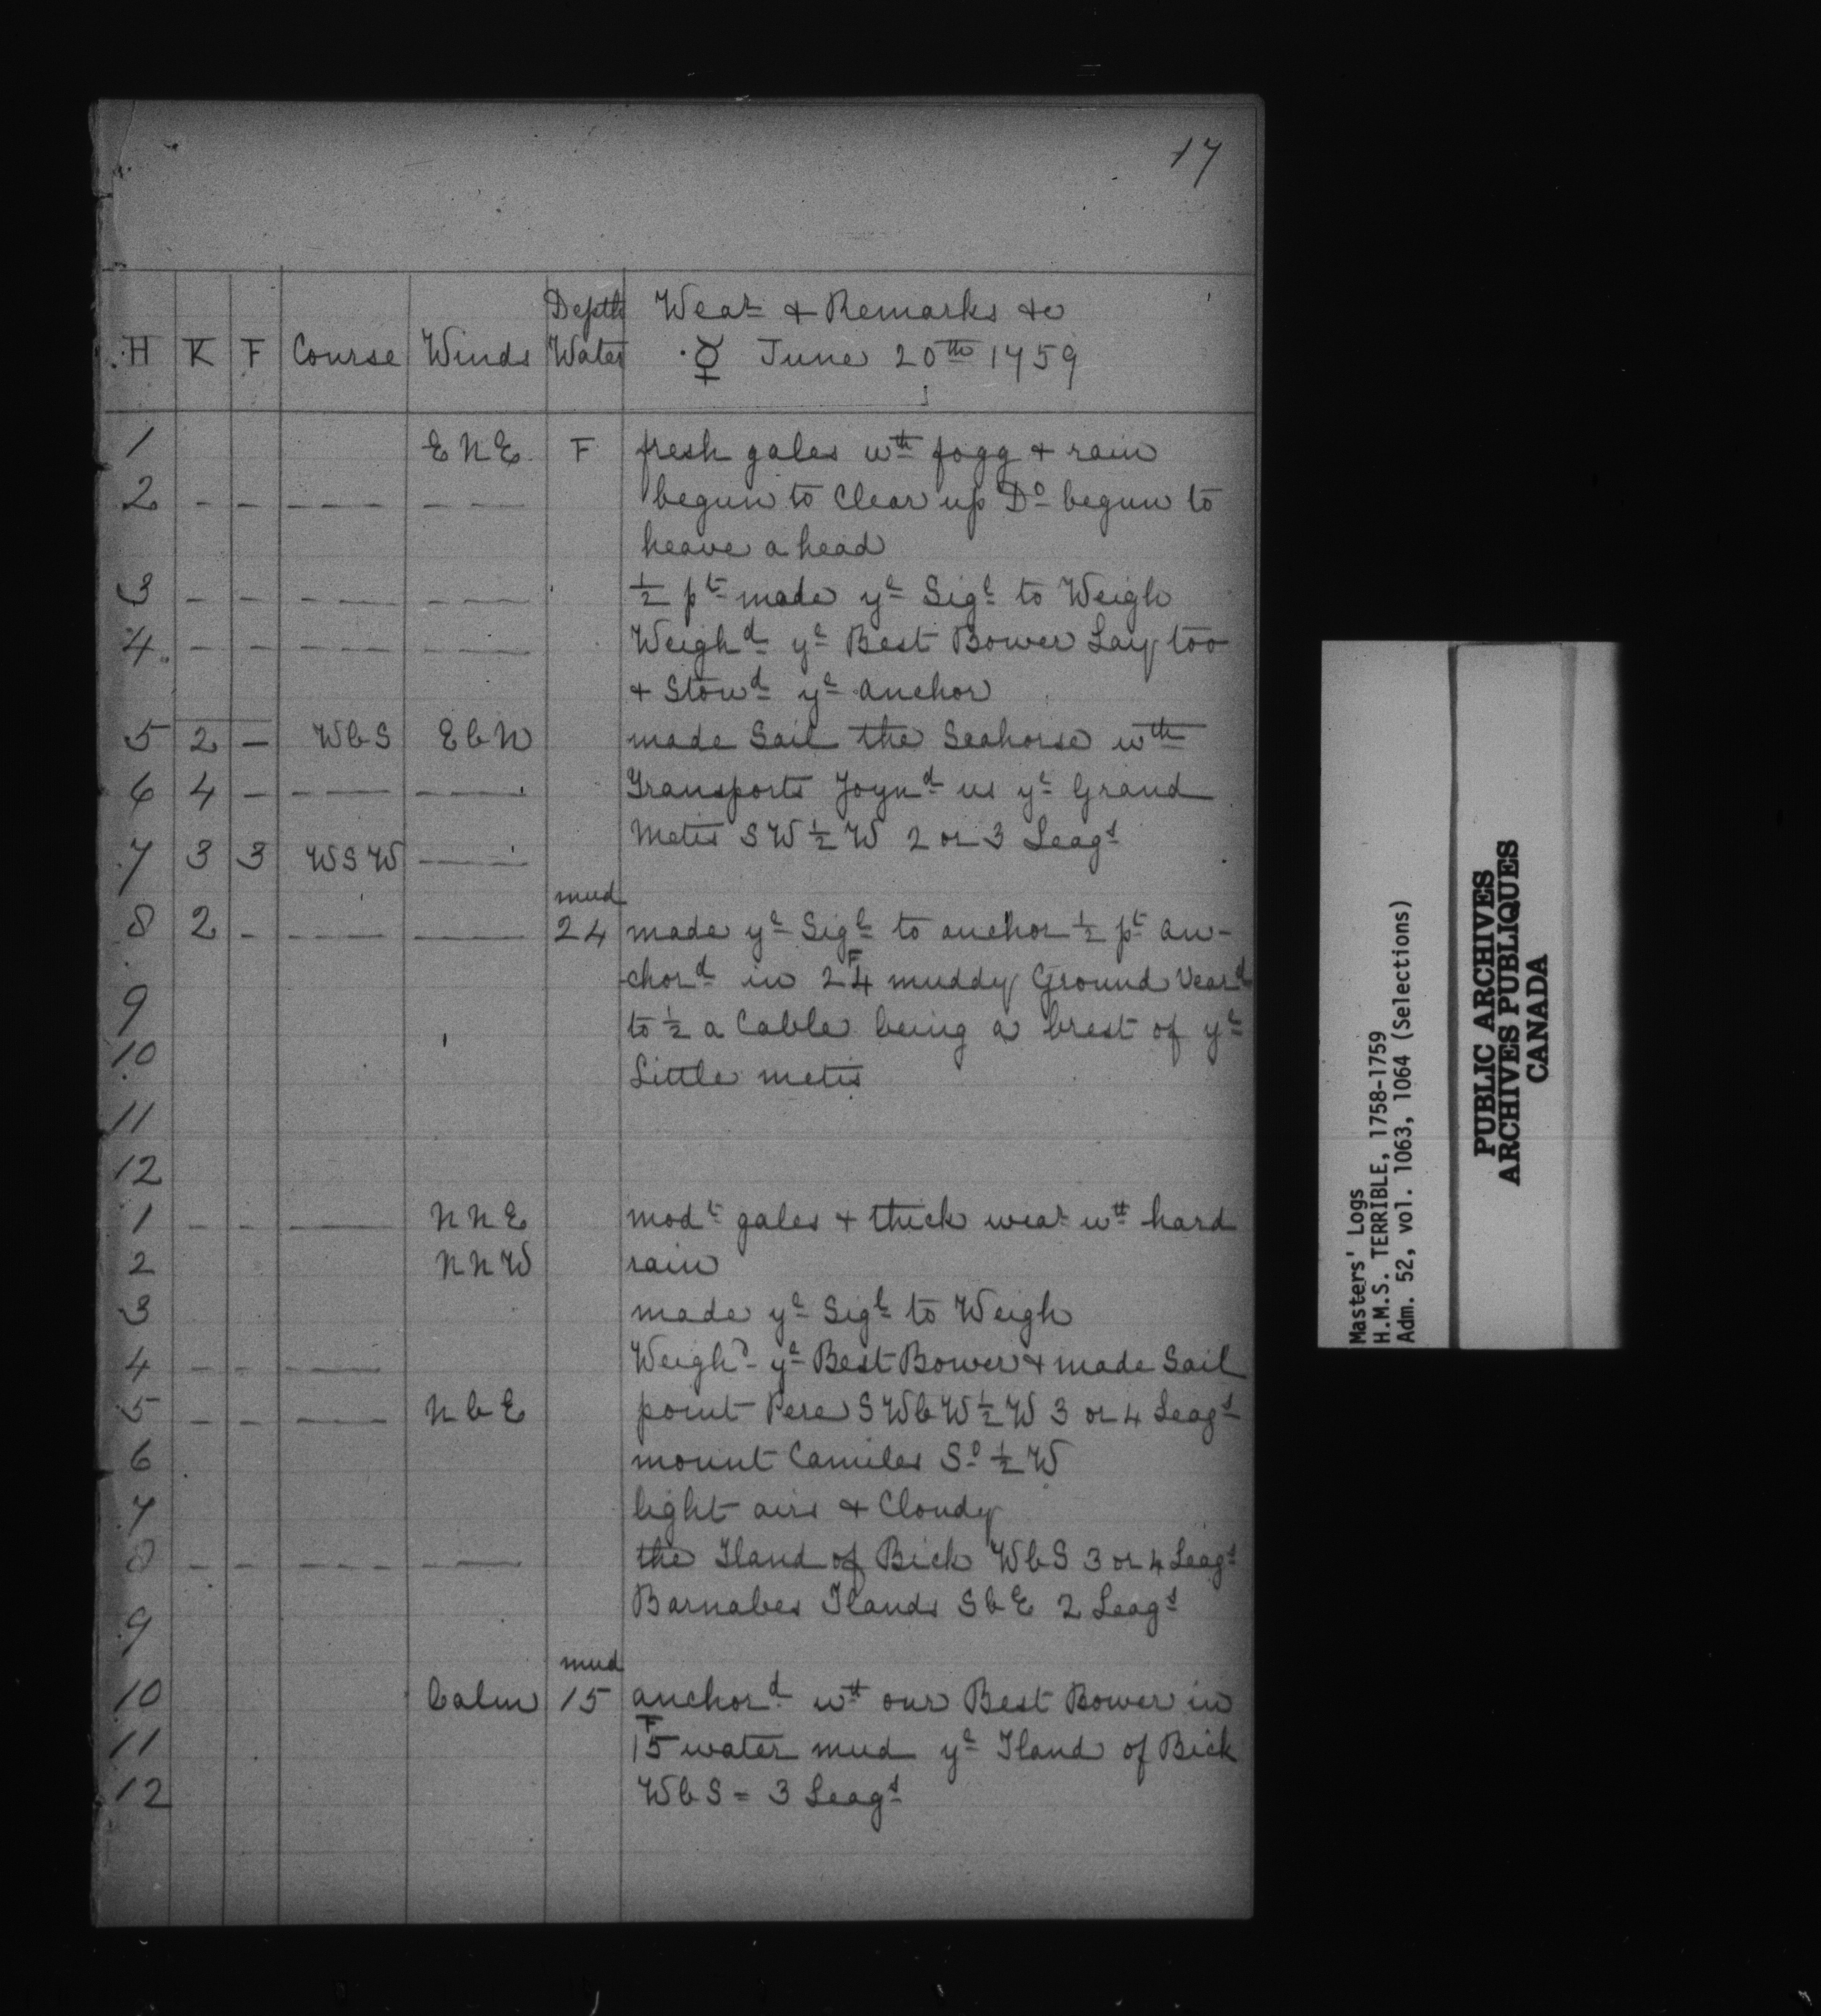 17
Depth Wea.r & Remarks &c
H K F Course Winds Water ☿ June 20th 1759
1 E N E F fresh gales wth fogg & rain
2 - - - - — - — — begun to Clear up Do begun to
heave a head
3 - - - - — - — — ½ pt made ye Sigl to Weigh
4 - - - - — - — — Weighd ye Best Bower Lay too
& Stowd ye anchor
5 2 - WbS EbN made Sail the Seahorse wth
6 4 - - - — — Transports Joynd us ye Grand
Metis S W ½ W 2 or 3 Leags
7 3 3 WSW —
mud
8 2 - - — — 24 made ye Sigl to anchor ½ pt an-
chord in 24 F muddy Ground Veard
9
to ½ a Cable being a brest of ye
10
Little metis
11
12
1 - - — N N E modt gales & thick wear wth hard
2 N N W rain
3 made ye Sigl to Weigh
4 - - - — Weighd ye Best Bower & made Sail
5 - - - — N b E point Pere S W b W ½ W 3 or 4 Leags
6 mount Camiles So ½ W
7 light airs & Cloudy
8 - - - - — - — the Iland of Bick WbS 3 or 4 Leags
Barnabes Ilands S b E 2 Leags
9
mud
10 Calm 15 anchord wth our Best Bower in
11 15 F water mud ye Iland of Bick
12 WbS = 3 Leags
Masters' Logs
H.M.S. TERRIBLE, 1758-1759
Adm. 52, vol. 1063, 1064 (Selections)
PUBLIC ARCHIVES
ARCHIVES PUBLIQUES
CANADA